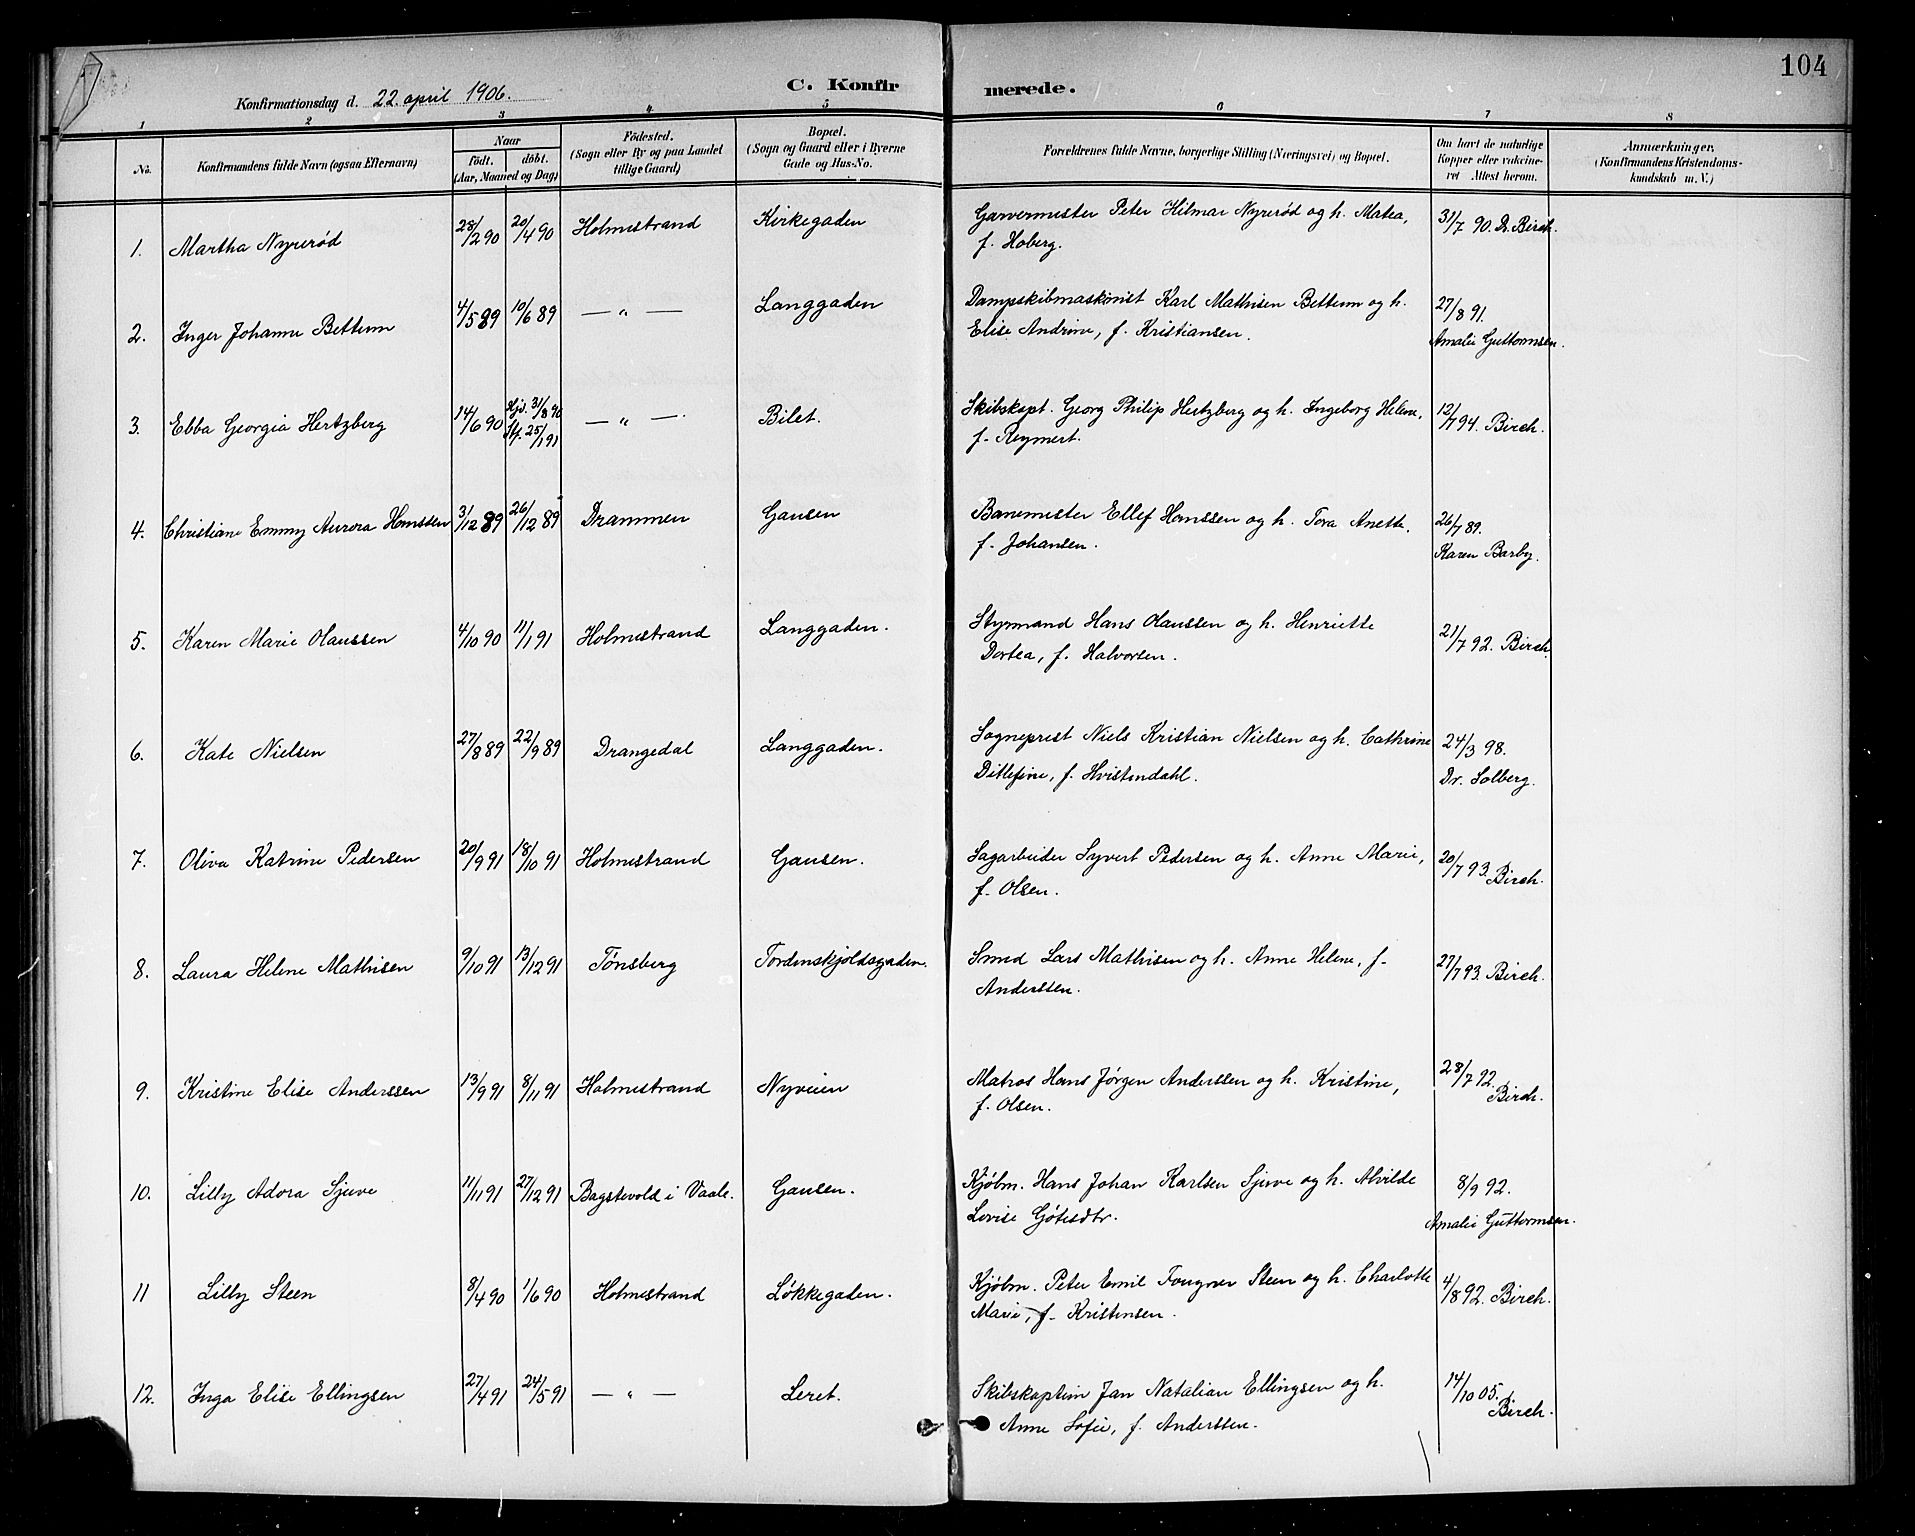 104
Konfirmationsdag d. 22. april 1906.
C. Konfirmerede.
1 2 3 4 5 6 7 8
No.
Konfirmandens fulde Navn (ogsaa Efternavn)
Naar
födt. döbt.
(Aar, Maaned og Dag)
Födested.
(Sogn eller By og paa Landet
tillige Gaard)
Bopæl.
(Sogn og Gaard eller i Byerne
Gade og Hus-No.
Forældrenes fulde Navne, borgerlige Stilling (Næringsvei) og Bopæl.
Om havt de naturlige
Kopper eller vakcine-
ret Attest herom.
Anmerkninger.
(Konfirmandens Kristendoms-
kundskab m. V.)
1. Martha Nyrerød 28/2 90 20/4 90 Holmestrand Kirkegaden Garvermester Peter Hilmar Nyrerød og h. Matea, 31/7 90. Dr. Birch.
f. Hoberg.
2. Inger Johanne Bettum 4/5 89 10/6 89 — " — Langgaden Dampskibmaskinist Karl Mathisen Bettum og h. 27/8 91.
Elise Andrine, f. Kristiansen. Amalie Guttormsen.
3. Ebba Georgia Hertzberg 14/6 90 Hjd. 31/8 90 — " — Bilet. Skibskapt. Georg Philip Hertzberg og h. Ingeborg Helene, 12/7 94. Birch.
Stf. 25/1 91 f. Reymert.
4. Christiane Emmy Aurora Hanssen 3/12 89 26/12 89 Drammen Gausen Banemester Ellef Hanssen og h. Tora Anette, 26/7 89.
f. Johansen. Karen Barby.
5. Karen Marie Olaussen 4/10 90 11/1 91 Holmestrand Langgaden. Styrmand Hans Olaussen og h. Henriette 21/7 92. Birch.
Dortea, f. Halvorsen.
6. Kate Nielsen 27/8 89 22/9 89 Drangedal Langgaden. Sogneprest Niels Kristian Nielsen og h. Cathrine 24/3 98.
Ditlefine, f. Hvistendahl. Dr. Solberg.
7. Oliva Katrine Pedersen 20/9 91 18/10 91 Holmestrand Gausen. Sagarbeider Syvert Pedersen og h. Anne Marie, 20/7 93. Birch.
f. Olsen.
8. Laura Helene Mathisen 9/10 91 13/12 91 Tønsberg Tordenskjoldsgaden. Smed Lars Mathisen og h. Anne Helene, f. 27/7 93. Birch.
Anderssen.
9. Kristine Elise Anderssen 13/9 91 8/11 91 Holmestrand Nyveien Matros Hans Jørgen Anderssen og h. Kristine, 28/7 92.
f. Olsen. Birch.
10. Lilly Adora Sjuve 11/11 91 27/12 91 Bagstevold i Vaale. Gausen. Kjøbm. Hans Johan Karlsen Sjuve og h. Alvilde 8/9 92.
Lovise Gøtesdtr. Amalie Guttormsen.
11 Lilly Steen 8/4 90 1/6 90 Holmestrand Løkkegaden. Kjøbm. Peter Emil Steen og h. Charlotte 4/8 92. Birch.
Marie, f. Kristensen.
12. Inga Elise Ellingsen 27/4 91 24/5 91 — " — Leret. Skibskaptein Jan Natalian Ellingsen og h. 14/10 05.
Anne Sofie, f. Anderssen. Birch.